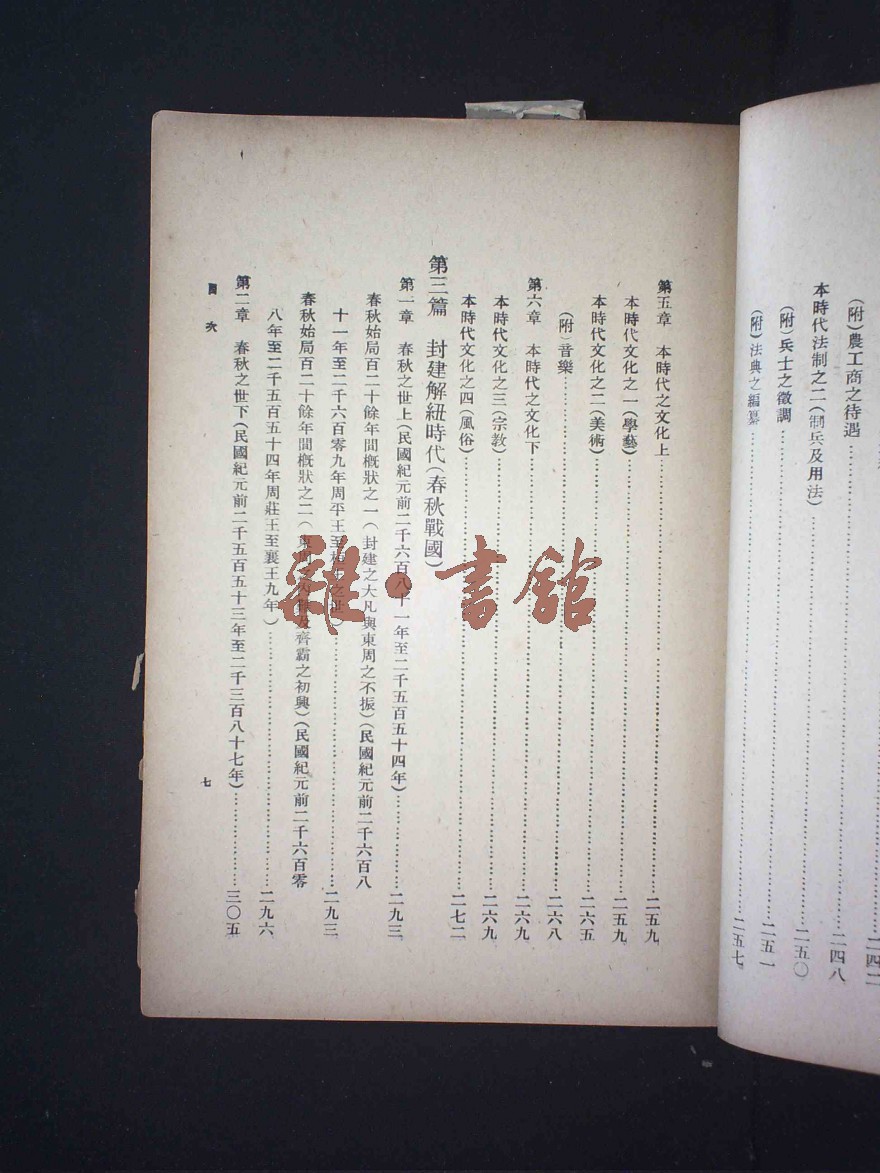 (附)農工商之待遇……二四二
本時代法制之二(制兵及用法)……二四八
(附)兵士之徵調……二五〇
(附)法典之編纂……二五七
第五章　本時代之文化上……二五九
本時代文化之一(學藝)……二五九
本時代文化之二(美術)……二六五
(附)音樂……二六八
第六章　本時代之文化下……二六九
本時代文化之三(宗教)……二六九
本時代文化之四(風俗)……二七二
第三篇　封建解紐時代(春秋戰國)
第一章　春秋之世上(民國紀元前二千六百八十一年至二千五百五十四年)……二九三
春秋始局百二十餘年間概狀之一(封建之大凡與東周之不振)(民國紀元前二千六百八
十一年至二千六百零九年周平王至桓王之世)……二九三
春秋始局百二十餘年間概狀之二(東周之及齊霸之初興)(民國紀元前二千六百零
八年至二千五百五十四年周莊王至襄王九年)……二九六
第二章　春秋之世下(民國紀元前二千五百五十三年至二千三百八十七年)……三〇五
目次
七
書館